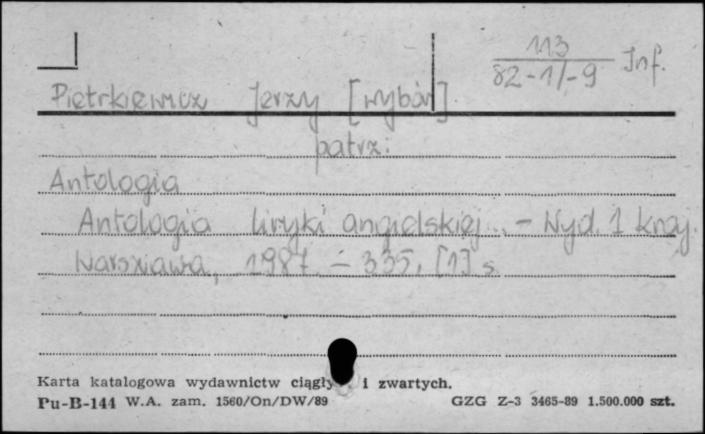 113
82-1/-9 Inf.
Pietrkiewicz Jerzy [wybór]
patrz:
Antologia
Antologia liryki angielskiej... - Wyd. 1 kraj.
Warszawa, 1987. - 335, [1] s.
Karta katalogowa wydawnictw ciągły i zwartych.
Pu-B-144 W.A. zam. 1560/On/DW/89 GZG Z-3 3465-89 1.500.000 szt.